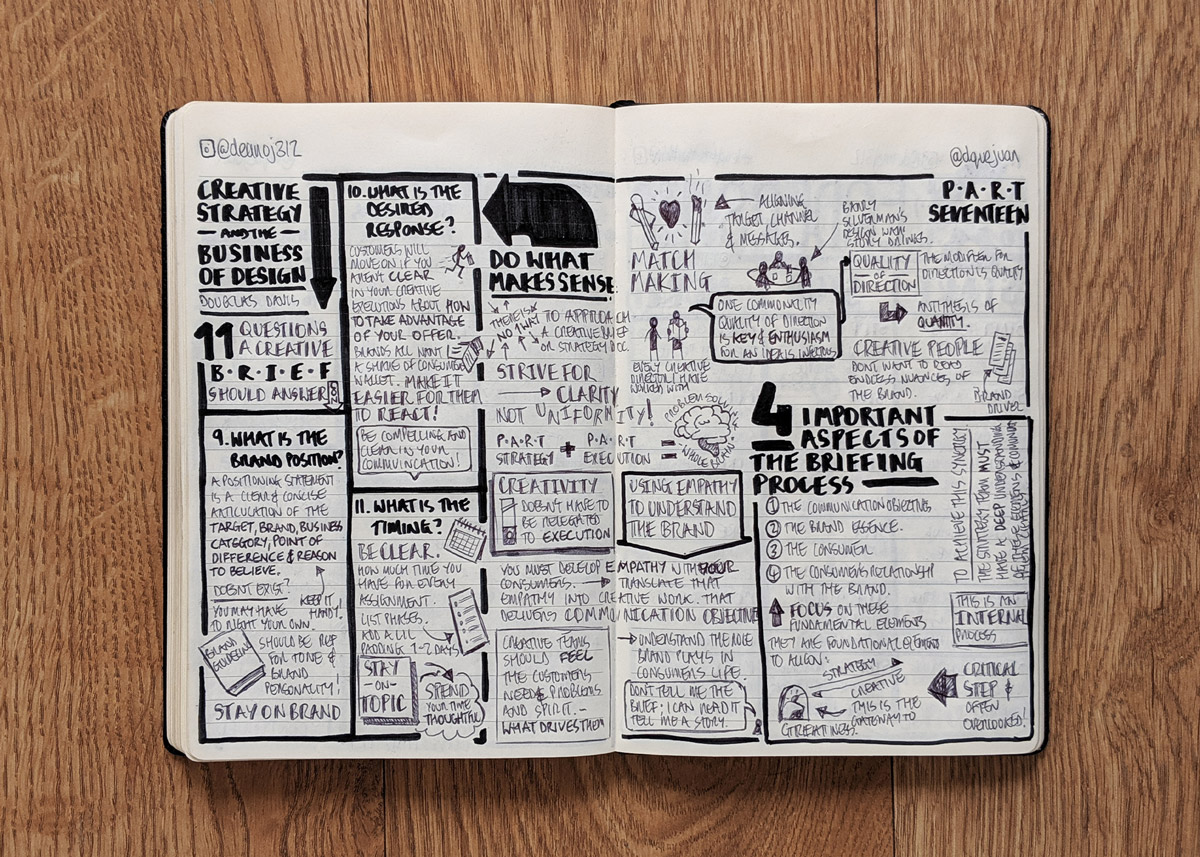 @deanoj312
CREATIVE
STRATEGY
AND THE
BUSINESS
OF DESIGN
DOUGLAS DAVIS
11 QUESTIONS
A CREATIVE
B·R·I·E·F
SHOULD ANSWER
9. WHAT IS THE
BRAND POSITION?
A POSITIONING STATEMENT
IS A CLEAR & CONCISE
ARTICULATION OF THE
TARGET, BRAND, BUSINESS
CATEGORY, POINT OF
DIFFERENCE & REASON
TO BELIEVE.
DOESN'T EXIST?
KEEP IT
HANDY!
YOU MAY HAVE
TO WRIGHT YOUR OWN.
BRAND
GUIDELINES
SHOULD BE REF
FOR TONE &
BRAND
PERSONALITY!
STAY ON BRAND
10. WHAT IS THE
DESIRED
RESPONSE?
CUSTOMERS WILL
MOVE ON IF YOU
AREN'T CLEAR
IN YOUR CREATIVE
EXECUTIONS ABOUT HOW
TO TAKE ADVANTAGE
OF YOUR OFFER.
BRANDS ALL WANT
A SHARE OF CONSUMER
WALLET. MAKE IT
EASIER FOR THEM
TO REACT!
BE COMPELLING AND
CLEAR IN YOUR
COMMUNICATION!
11. WHAT IS THE
TIMING?
BE CLEAR.
HOW MUCH TIME YOU
HAVE FOR EVERY
ASSIGNMENT.
LIST PHASES.
ADD A LIL
PADDING 1-2 DAYS
STAY
-ON-
TOPIC
SPEND
YOUR TIME
THOUGHTFUL
DO WHAT
MAKES SENSE
THERE IS
NO 1 WAY
TO APPROACH
A CREATIVE BRIEF
OR STRATEGY DOC.
STRIVE FOR
CLARITY
NOT UNIFORMITY!
P·A·R·T + P·A·R·T =
STRATEGY EXECUTION
PROBLEM SOLVING
WHOLE BRAIN
CREATIVITY
DOESN'T HAVE TO
BE RELEGATED
TO EXECUTION
USING EMPATHY
TO UNDERSTAND
THE BRAND
YOU MUST DEVELOP EMPATHY WITH YOUR
CONSUMERS. TRANSLATE THAT
EMPATHY INTO CREATIVE WORK. THAT
DELIVERS COMMUNICATION OBJECTIVE
CREATIVE TEAMS
SHOULD FEEL
THE CUSTOMERS
NEEDS PROBLEMS
AND SPIRIT.
WHAT DRIVES THEM
UNDERSTAND THE ROLE
BRAND PLAYS IN
CONSUMERS LIFE.
DON'T TELL ME THE
BRIEF; I CAN READ IT
TELL ME A STORY.
@dquejuan
P·A·R·T
SEVENTEEN
ALIGNING
TARGET CHANNEL
& MESSAGES.
MATCH
MAKING
BARRY
SILVERMAN'S
DESIGN WAR
STORY DRINKS.
QUALITY
OF
DIRECTION
THE MODIFIER FOR
DIRECTION IS QUALITY
ANTITHESIS OF
QUANTITY.
ONE COMMONALITY
QUALITY OF DIRECTION
IS KEY & ENTHUSIASM
FOR AN IDEA IS INFECTIOUS
EVERY CREATIVE
DIRECTOR I HAVE
WORKED WITH
CREATIVE PEOPLE
DON'T WANT TO READ
ENDLESS NUANCES OF
THE BRAND.
BRAND
DRIVER
4 IMPORTANT
ASPECTS OF
THE BRIEFING
PROCESS
1 THE COMMUNICATION OBJECTIVES
2 THE BRAND ESSENCE.
3 THE CONSUMER
4 THE CONSUMERS RELATIONSHIP
WITH THE BRAND.
TO ACHIEVE THIS SYNERGY
THE STRATEGY TEAM MUST
HAVE A DEEP UNDERSTANDING
FOCUS ON THESE
FUNDAMENTAL ELEMENTS
THIS IS AN
INTERNAL
PROCESS
THEY ARE FOUNDATIONAL ELEMENTS
TO ALIGN:
STRATEGY
CREATIVE
THIS IS THE
GATEWAY TO
GREATNESS.
CRITICAL
STEP &
OFTEN
OVERLOOKED!